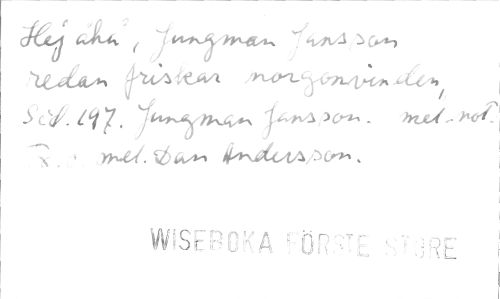 Hej åhå, Jungman Jansson
redan friskar norgonvinden,
Sid. 197. Jungman Jansson. mel.-not.
mel. Dan Andersson.
WISEBOKA FÖRSTE STORE